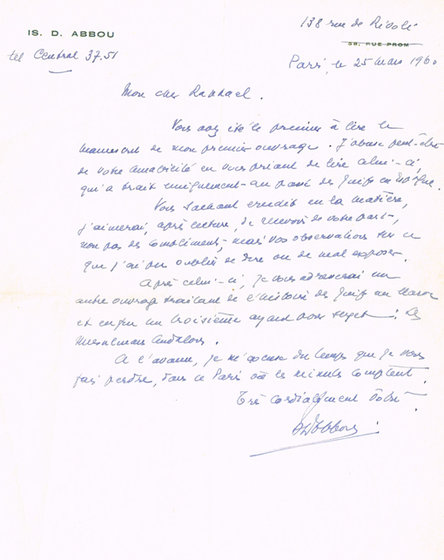 138 rue de Rivoli
IS. D. ABBOU
58, RUE PRONY
tel Central 37.51
Paris, le 25 mars 1960
Mon cher Raphael.
Vous avez été le premier à lire le
manuscrit de mon premier ouvrage. J'abuse peut-être
de votre amabilité en vous priant de lire celui-ci,
qui a trait uniquement au passé des Juifs en
Vous sachant érudit en la matière,
j'aimerai, après lecture, de recevoir de votre part,
non pas des compliments, mais vos observations sur ce
que j'ai pu oublié de dire ou de mal exposer.
Après celui-ci, je vous adresserai un
autre ouvrage traitant de l'histoire des Juifs au Maroc
et enfin un troisième ayant pour sujet : Les
Musulmans Andalous.
A l'avance, je m'excuse du temps que je vous
fais perdre, dans ce Paris où les minutes comptent.
Très cordialement vôtre